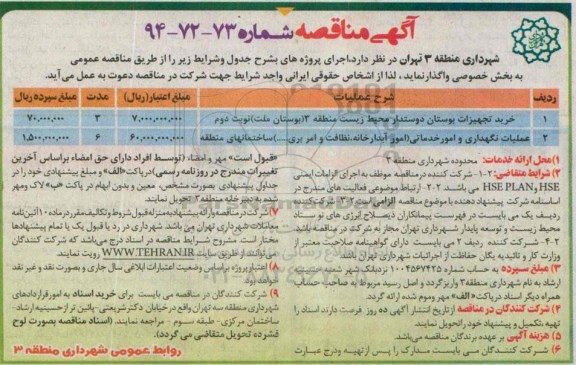 آگهی مناقصه شماره ۷۳-۷۲-۹۴
شهرداری منطقه ۳ تهران در نظر دارد،اجرای پروژه های بشرح جدول وشرایط زیر را از طریق مناقصه عمومی
به بخش خصوصی واگذارنماید ، لذا از اشخاص حقوقی ایرانی واجد شرایط جهت شرکت در مناقصه دعوت به عمل می‌آید.
ردیف شرح عملیات مبلغ اعتبار(ریال) مدت مبلغ سپرده ریال
۱ خرید تجهیزات بوستان دوستدار محیط زیست منطقه ۳(بوستان ملت)نوبت دوم ۷,۰۰۰,۰۰۰,۰۰۰ ۳ ۷۰,۰۰۰,۰۰۰
۲ عملیات نگهداری و امورخدماتی(امور آبدارخانه،نظافت و امر بری.....)ساختمانهای منطقه ۶۰,۰۰۰,۰۰۰,۰۰۰ ۱۲ ۱,۵۰۰,۰۰۰,۰۰۰
۱) محل ارائه خدمات: محدوده شهرداری منطقه ۳
۲) شرایط متقاضی: ۱-۲- شرکت کننده درمناقصه موظف به اجرای الزامات ایمنی
HSE و HSE PLAN می باشد. ۲-۲- ارتباط موضوعی فعالیت های مندرج در
اساسنامه شرکت پیشنهاد دهنده با موضوع مناقصه الزامی است.
ردیف یک می بایست در فهرست پیمانکاران ذیصلاح انرژی های نو ستاد
محیط زیست و توسعه پایدار شهرداری تهران مجاز به شرکت در مناقصه باشد
۴-۲- شرکت کننده ردیف ۲ می بایست دارای گواهینامه صلاحیت معتبر از
وزارت کار و تائیدیه یگان حفاظت از اجرائیات شهرداری تهران باشد.
۳) مبلغ سپرده به حساب شماره ۱۰۰۴۵۶۷۴۳۵ نزدبانک شهر شعبه
ارشاد به نام شهرداری منطقه۳ واریزگردد و اصل رسید مربوط به صاحب حساب
همراه دیگر اسناد درپاکت«الف» مهر وموم شده ارائه گردد.
۴) شرکت کنندگان در مناقصه از تاریخ انتشار آگهی ده روز فرصت دارند اسناد را
تهیه ،تکمیل و پیشنهاد خود راتحویل نمایند.
۵) هزینه آگهی بر عهده برندگان مناقصه می‌باشد.
۶) شرکت کنندگان می بایست مدارک را پس ازتهیه ودرج عبارت
«قبول است» مهر و امضاء (توسط افراد دارای حق امضاء براساس آخرین
تغییرات مندرج در روزنامه رسمی) درپاکت«الف» و مبلغ پیشنهادی خود را در
جداول پیشنهادی بصورت مشخص، معین و بدون ابهام در پاکت «ب» لاک ومهر
شده به دبیرخانه منطقه۳ تحویل نمایند.
۷) شرکت درمناقصه وارائه پیشنهادبه منزله قبول شروط و تکالیف مقرر درماده ۱۰آئین‌نامه
معاملات شهرداری تهران می باشد. شهرداری در رد یا قبول یک یا تمام پیشنهادها
مختار است. مشروح شرایط مناقصه در اسناد درج می‌باشد که شرکت کنندگان
می‌توانند از طریق سایت WWW.TEHRAN.IR رویت نمایند.
۸) اعتبار پروژه براساس وضعیت اعتبارات ابلاغی سال جاری و بصورت نقد و غیر نقد
۹) شرکت کنندگان در مناقصه می بایست برای خرید اسناد به امور قراردادهای
شهرداری منطقه سه تهران واقع در خیابان دکترشریعتی- پائین تر از حسینیه ارشاد-
ساختمان مرکزی- طبقه سوم - مراجعه نمایند. (اسناد مناقصه بصورت لوح
فشرده تحویل متقاضی می گردد).
روابط عمومی شهرداری منطقه ۳